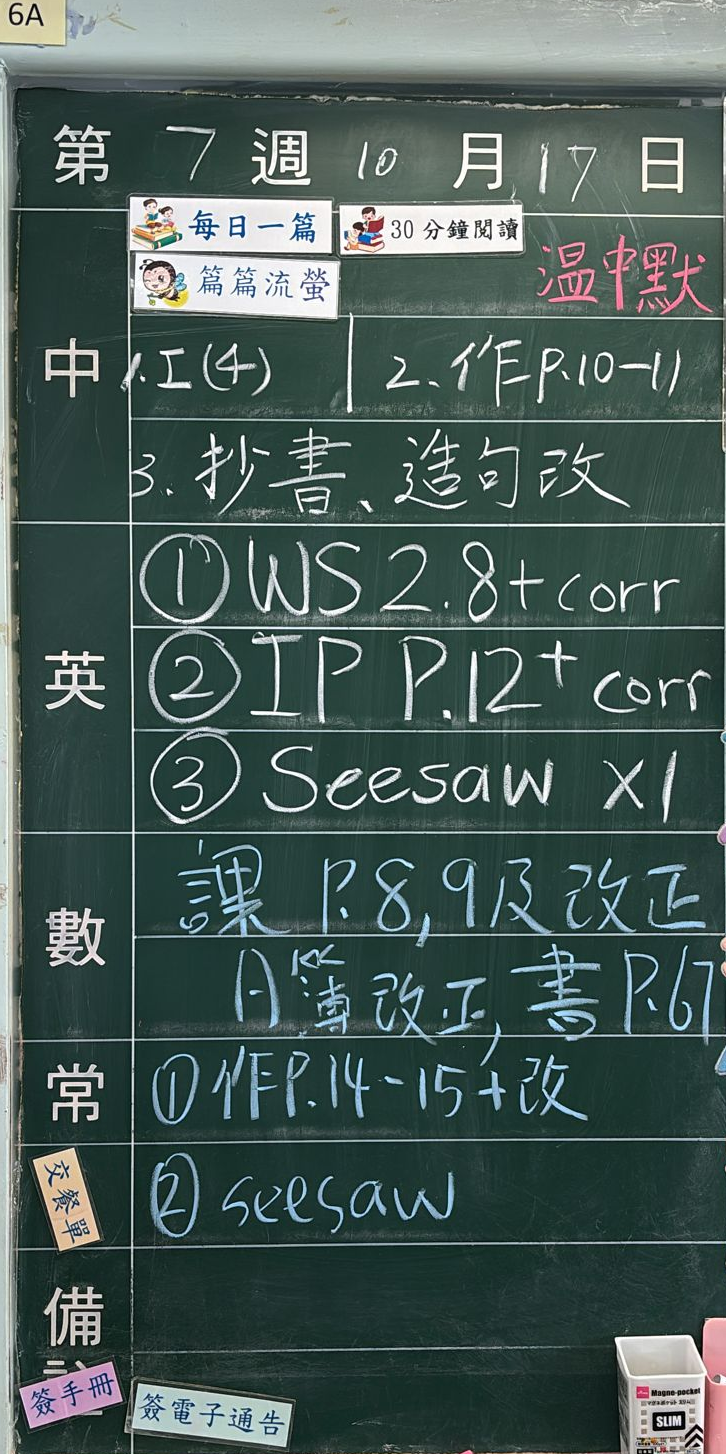 6A
第 7 週 10 月 17 日
每日一篇
30分鐘閱讀
篇篇流螢
溫中默
中
1.工(4) | 2.作P.10-11
3.抄書、造句改
英
① WS 2.8+corr
② IP P.12+ corr
③ Seesaw x1
數
課 P.8,9及改正
A簿改正,書P.67
常
①作P.14-15+改
② seesaw
交餐單
備
簽手冊
簽電子通告
Magne-pocket
SLIM